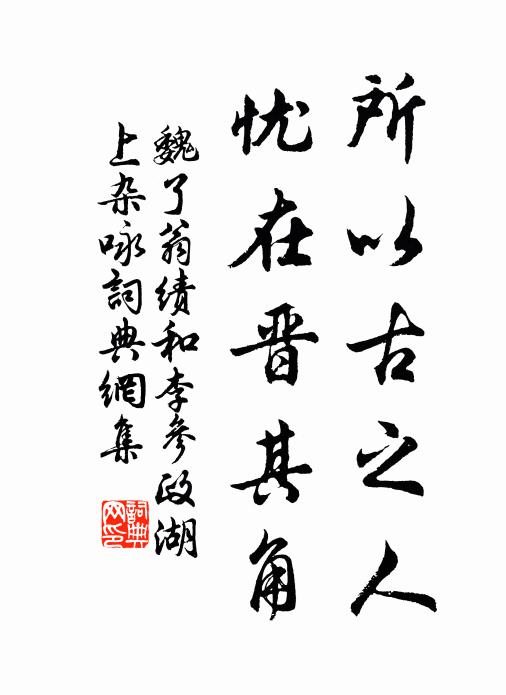 所以古之人
忧在晋其角
魏了翁绩和李参政湖
上杂咏词典網集
詞典
网印